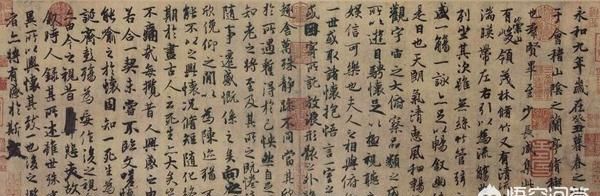 永和九年歲在癸丑暮春之
于會稽山陰之蘭亭脩禊
也羣賢畢至少長咸集
崇山
有峻領茂林脩竹又有清
湍暎帶左右引以為流觴
列坐其次雖無絲竹管弦
盛一觴一詠亦足以暢敘幽
是日也天朗氣清惠風和
觀宇宙之大俯察品類之
所以遊目騁懷足以極視聽
娛信可樂也夫人之相與俯
一世或取諸懷抱悟言一室之
或因寄所託放浪形骸之外
趣舍萬殊靜躁不同當其
於所遇蹔得於己怏然自
知老之將至及其所之既惓
隨事遷感慨係之矣向之
欣俛仰之閒以為陳迹
能不以之興懷況脩短隨化
期於盡古人云死生亦大矣
不痛哉每攬昔人興感之由
若合一契未嘗不臨文嗟悼
能喻之於懷固知一死生為
誕齊彭殤為妄作後之視
亦由今之視昔悲夫故
敘時人錄其所述雖世殊
異所以興懷其致一也後之
者亦將有感於斯文
悟空问答